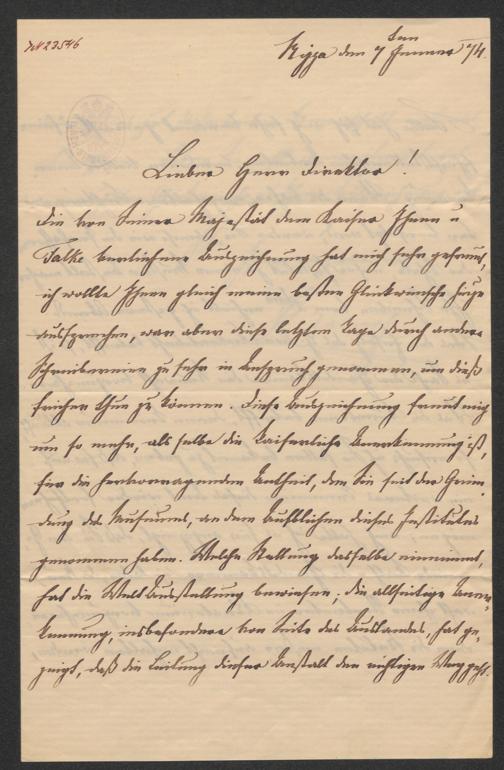 IN 23546
Nizza den 7 ten Jenner 74.
Lieber Herr Direktor!
Die von Seiner Majestät dem Kaiser Ihnen u
Falke verliehene Auszeichnung hat mich sehr gefreut,
ich wollte Ihnen gleich meine besten Glückwünsche hiezu
aussprechen, war aber diese letzten Tage durch andere
Schreibereien zu sehr in Anspruch genommen, um dieß
früher thun zu können. Diese Auszeichnung freut mich
um so mehr, als selbe die Kaiserliche Anerkennung ist,
für die hervorragenden Antheil, den Sie seit der Grün-
dung des Museums, an dem Aufblühen dieses Institutes
genommen haben. Welche Stellung dasselbe einnimmt,
hat die Weltausstellung bewiesen; die allseitige Aner-
kennung, insbesondere von Seite des Auslandes, hat ge-
zeigt, daß die Leitung dieser Anstalt den richtigen Weg geht.